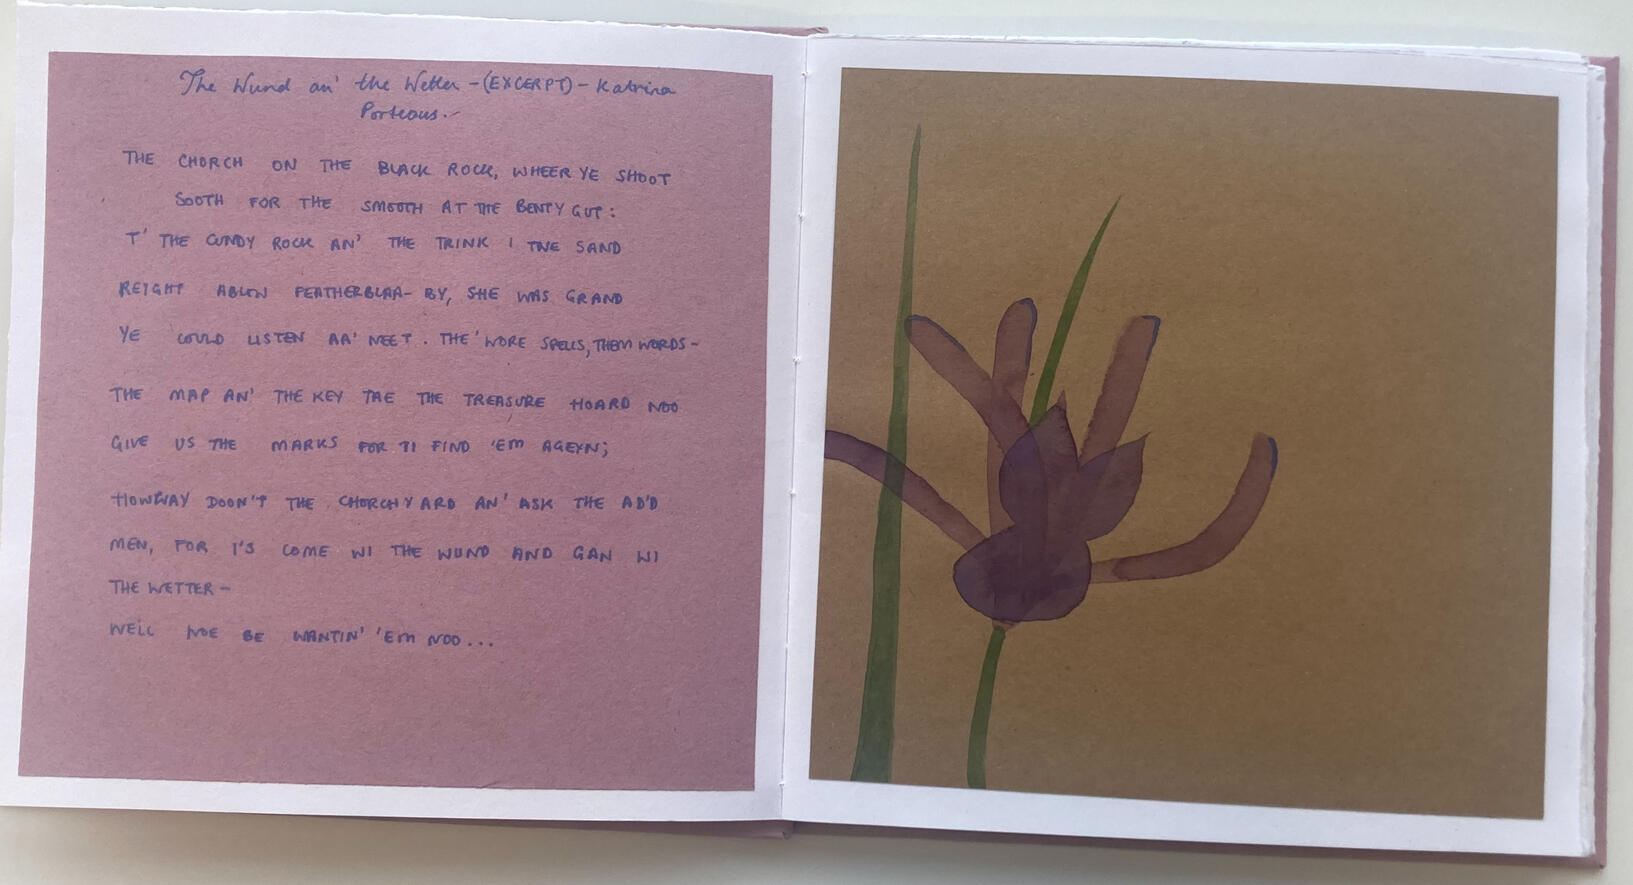 The Wund an' the Wetter - (EXCERPT) - Katrina
Porteous.
THE CHORCH ON THE BLACK ROCK, WHEER YE SHOOT
SOOTH FOR THE SMOOTH AT THE BENTY GUT:
T' THE CUNDY ROCK AN' THE TRINK I THE SAND
REIGHT ABLOW FEATHERBLAA- BY, SHE WAS GRAND
YE COULD LISTEN AA' NEET. THE' WORE SPELLS, THEM WORDS-
THE MAP AN' THE KEY TAE THE TREASURE HOARD NOO
GIVE US THE MARKS FOR TI FIND 'EM AGEYN;
HOWWAY DOON'T THE CHORCHYARD AN' ASK THE AD'D
MEN, FOR I'S COME WI THE WUND AND GAN WI
THE WETTER-
WE'LL NOE BE WANTIN' 'EM NOO...